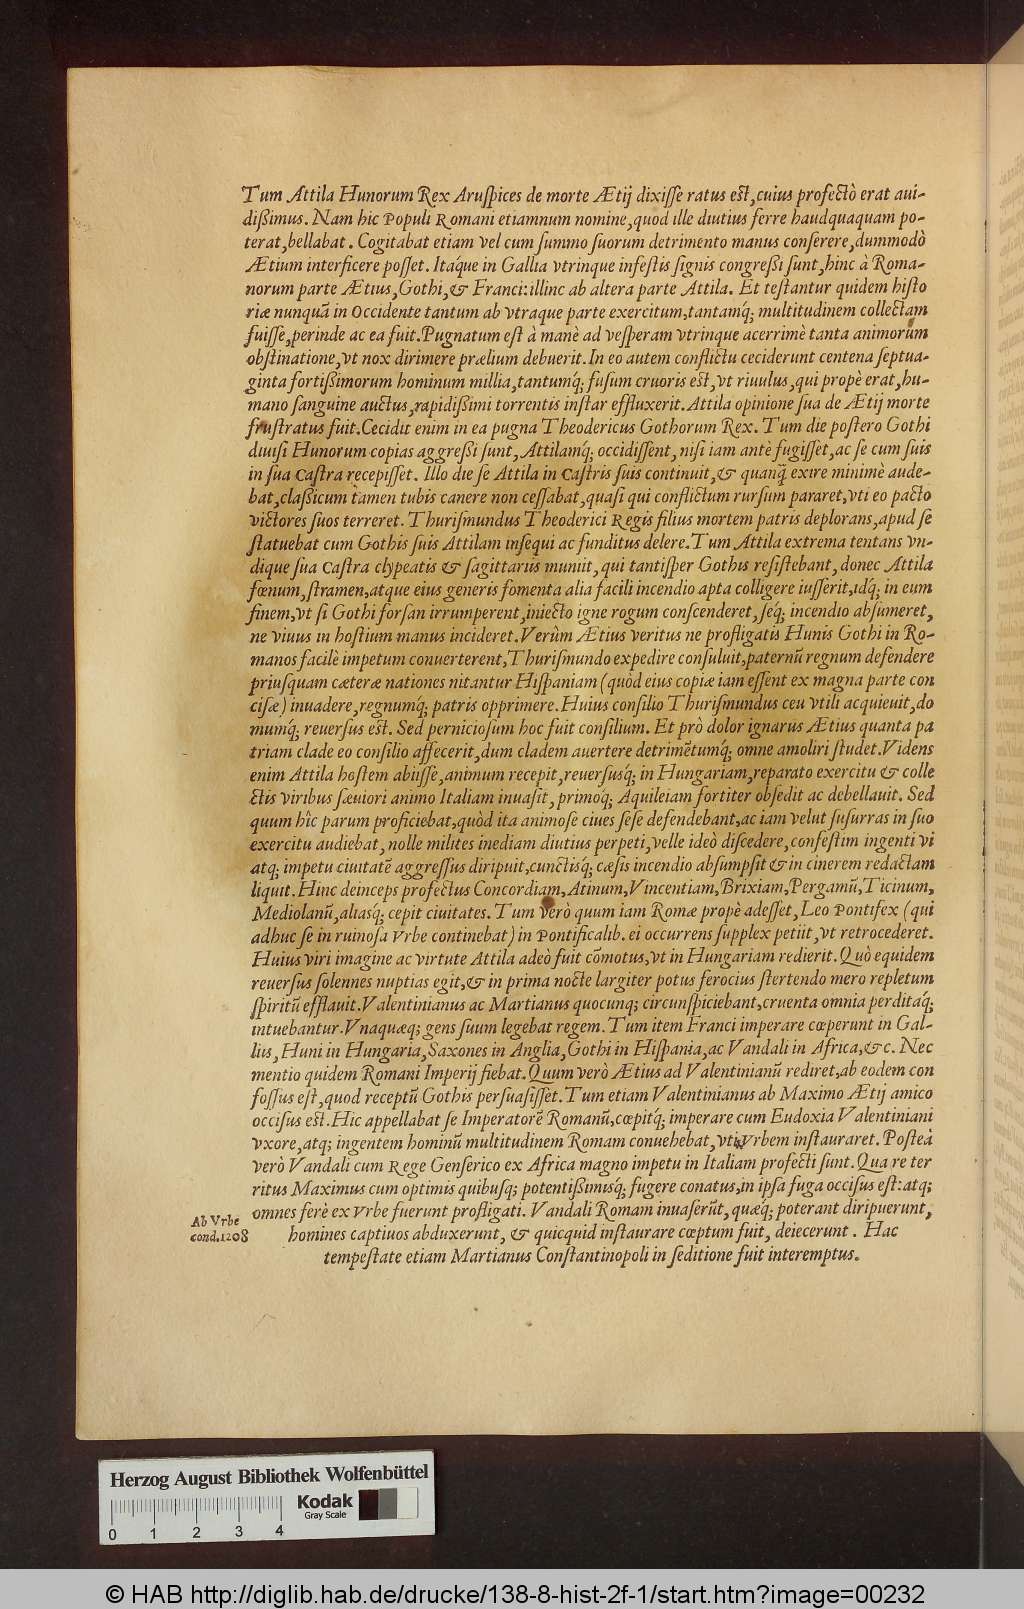 Tum Attila Hunorum Rex Aruſpices de morte Ætij dixiſſe ratus eſt, cuius profectò erat aui-
dißimus. Nam hic Populi Romani etiamnum nomine, quod ille diutius ferre haudquaquam po-
terat, bellabat. Cogitabat etiam vel cum ſummo ſuorum detrimento manus conſerere, dummodò
Ætium interficere poſſet. Itaq́ue in Gallia vtrinque infeſtis ſignis congreßi ſunt, hinc à Roma-
norum parte Ætius, Gothi, & Franci: illinc ab altera parte Attila. Et teſtantur quidem hiſto
riæ nunquã in Occidente tantum ab vtraque parte exercitum, tantamq́; multitudinem collectam
fuiſſe, perinde ac ea fuit. Pugnatum eſt à manè ad veſperam vtrinque acerrimè tanta animorum
obſtinatione, vt nox dirimere prælium debuerit. In eo autem conflictu ceciderunt centena ſeptua-
ginta fortißimorum hominum millia, tantumq́; fuſum cruoris eſt, vt riuulus, qui propè erat, hu-
mano ſanguine auctus, rapidißimi torrentis inſtar effluxerit. Attila opinione ſua de Ætij morte
fruſtratus fuit. Cecidit enim in ea pugna Theodericus Gothorum Rex. Tum die poſtero Gothi
diuiſi Hunorum copias aggreßi ſunt, Attilamq́; occidiſſent, niſi iam antè fugiſſet, ac ſe cum ſuis
in ſua Caſtra recepiſſet. Illo die ſe Attila in Caſtris ſuis continuit, & quanq̃ exire minimè aude-
bat, claßicum tamen tubis canere non ceſſabat, quaſi qui conflictum rurſum pararet, vti eo pacto
victores ſuos terreret. Thuriſmundus Theoderici Regis filius mortem patris deplorans, apud ſe
ſtatuebat cum Gothis ſuis Attilam inſequi ac funditus delere. Tum Attila extrema tentans vn-
dique ſua Caſtra clypeatis & ſagittariis muniit, qui tantiſper Gothis reſiſtebant, donec Attila
fœnum, ſtramen, atque eius generis fomenta alia facili incendio apta colligere iuſſerit, idq́; in eum
finem, vt ſi Gothi forſan irrumperent, iniecto igne rogum conſcenderet, ſeq́; incendio abſumeret,
ne viuus in hoſtium manus incideret. Verùm Ætius veritus ne profligatis Hunis Gothi in Ro-
manos facilè impetum conuerterent, Thuriſmundo expedire conſuluit, paternũ regnum defendere
priuſquam cæteræ nationes nitantur Hiſpaniam (quòd eius copiæ iam eſſent ex magna parte con
ciſæ) inuadere, regnumq́; patris opprimere. Huius conſilio Thuriſmundus ceu vtili acquieuit, do
mumq́; reuerſus eſt. Sed pernicioſum hoc fuit conſilium. Et prò dolor ignarus Ætius quanta pa
triam clade eo conſilio affecerit, dum cladem auertere detrimẽtumq́; omne amoliri ſtudet. Videns
enim Attila hoſtem abiiſſe, animum recepit, reuerſusq́; in Hungariam, reparato exercitu & colle
ctis viribus ſæuiori animo Italiam inuaſit, primoq́; Aquileiam fortiter obſedit ac debellauit. Sed
quum hîc parum proficiebat, quòd ita animoſè ciues ſeſe defendebant, ac iam velut ſuſurras in ſuo
exercitu audiebat, nolle milites inediam diutius perpeti, velle ideò diſcedere, confeſtim ingenti vi
atq; impetu ciuitatẽ aggreſſus diripuit, cunctisq́; cæſis incendio abſumpſit & in cinerem redactam
liquit. Hinc deinceps profectus Concordiam, Atinum, Vincentiam, Brixiam, Pergamũ, Ticinum,
Mediolanũ, aliasq́; cepit ciuitates. Tum verò quum iam Romæ propè adeſſet, Leo Pontifex (qui
adhuc ſe in ruinoſa Vrbe continebat) in Pontificalib. ei occurrens ſupplex petiit, vt retrocederet.
Huius viri imagine ac virtute Attila adeò fuit cõmotus, vt in Hungariam redierit. Quò equidem
reuerſus ſolennes nuptias egit, & in prima nocte largiter potus ferocius ſtertendo mero repletum
ſpiritũ efflauit. Valentinianus ac Martianus quocunq; circunſpiciebant, cruenta omnia perditaq́;
intuebantur. Vnaquæq; gens ſuum legebat regem. Tum item Franci imperare cœperunt in Gal-
liis, Huni in Hungaria, Saxones in Anglia, Gothi in Hiſpania, ac Vandali in Africa, &c. Nec
mentio quidem Romani Imperij fiebat. Quum verò Ætius ad Valentinianũ rediret, ab eodem con
foſſus eſt, quod receptũ Gothis perſuaſiſſet. Tum etiam Valentinianus ab Maximo Ætij amico
occiſus eſt. Hic appellabat ſe Imperatorẽ Romanũ, cœpitq́; imperare cum Eudoxia Valentiniani
vxore, atq; ingentem hominũ multitudinem Romam conuehebat, vti Vrbem inſtauraret. Poſteà
verò Vandali cum Rege Genſerico ex Africa magno impetu in Italiam profecti ſunt. Qua re ter
ritus Maximus cum optimis quibuſq; potentißimisq́; fugere conatus, in ipſa fuga occiſus eſt: atq;
omnes ferè ex Vrbe fuerunt profligati. Vandali Romam inuaſerũt, quæq; poterant diripuerunt,
homines captiuos abduxerunt, & quicquid inſtaurare cœptum fuit, deiecerunt. Hac
tempeſtate etiam Martianus Conſtantinopoli in ſeditione fuit interemptus.
Ab Vrbe
cond. 1208
Herzog August Bibliothek Wolfenbüttel
Kodak
Gray Scale
0 1 2 3 4
© HAB http://diglib.hab.de/drucke/138-8-hist-2f-1/start.htm?image=00232